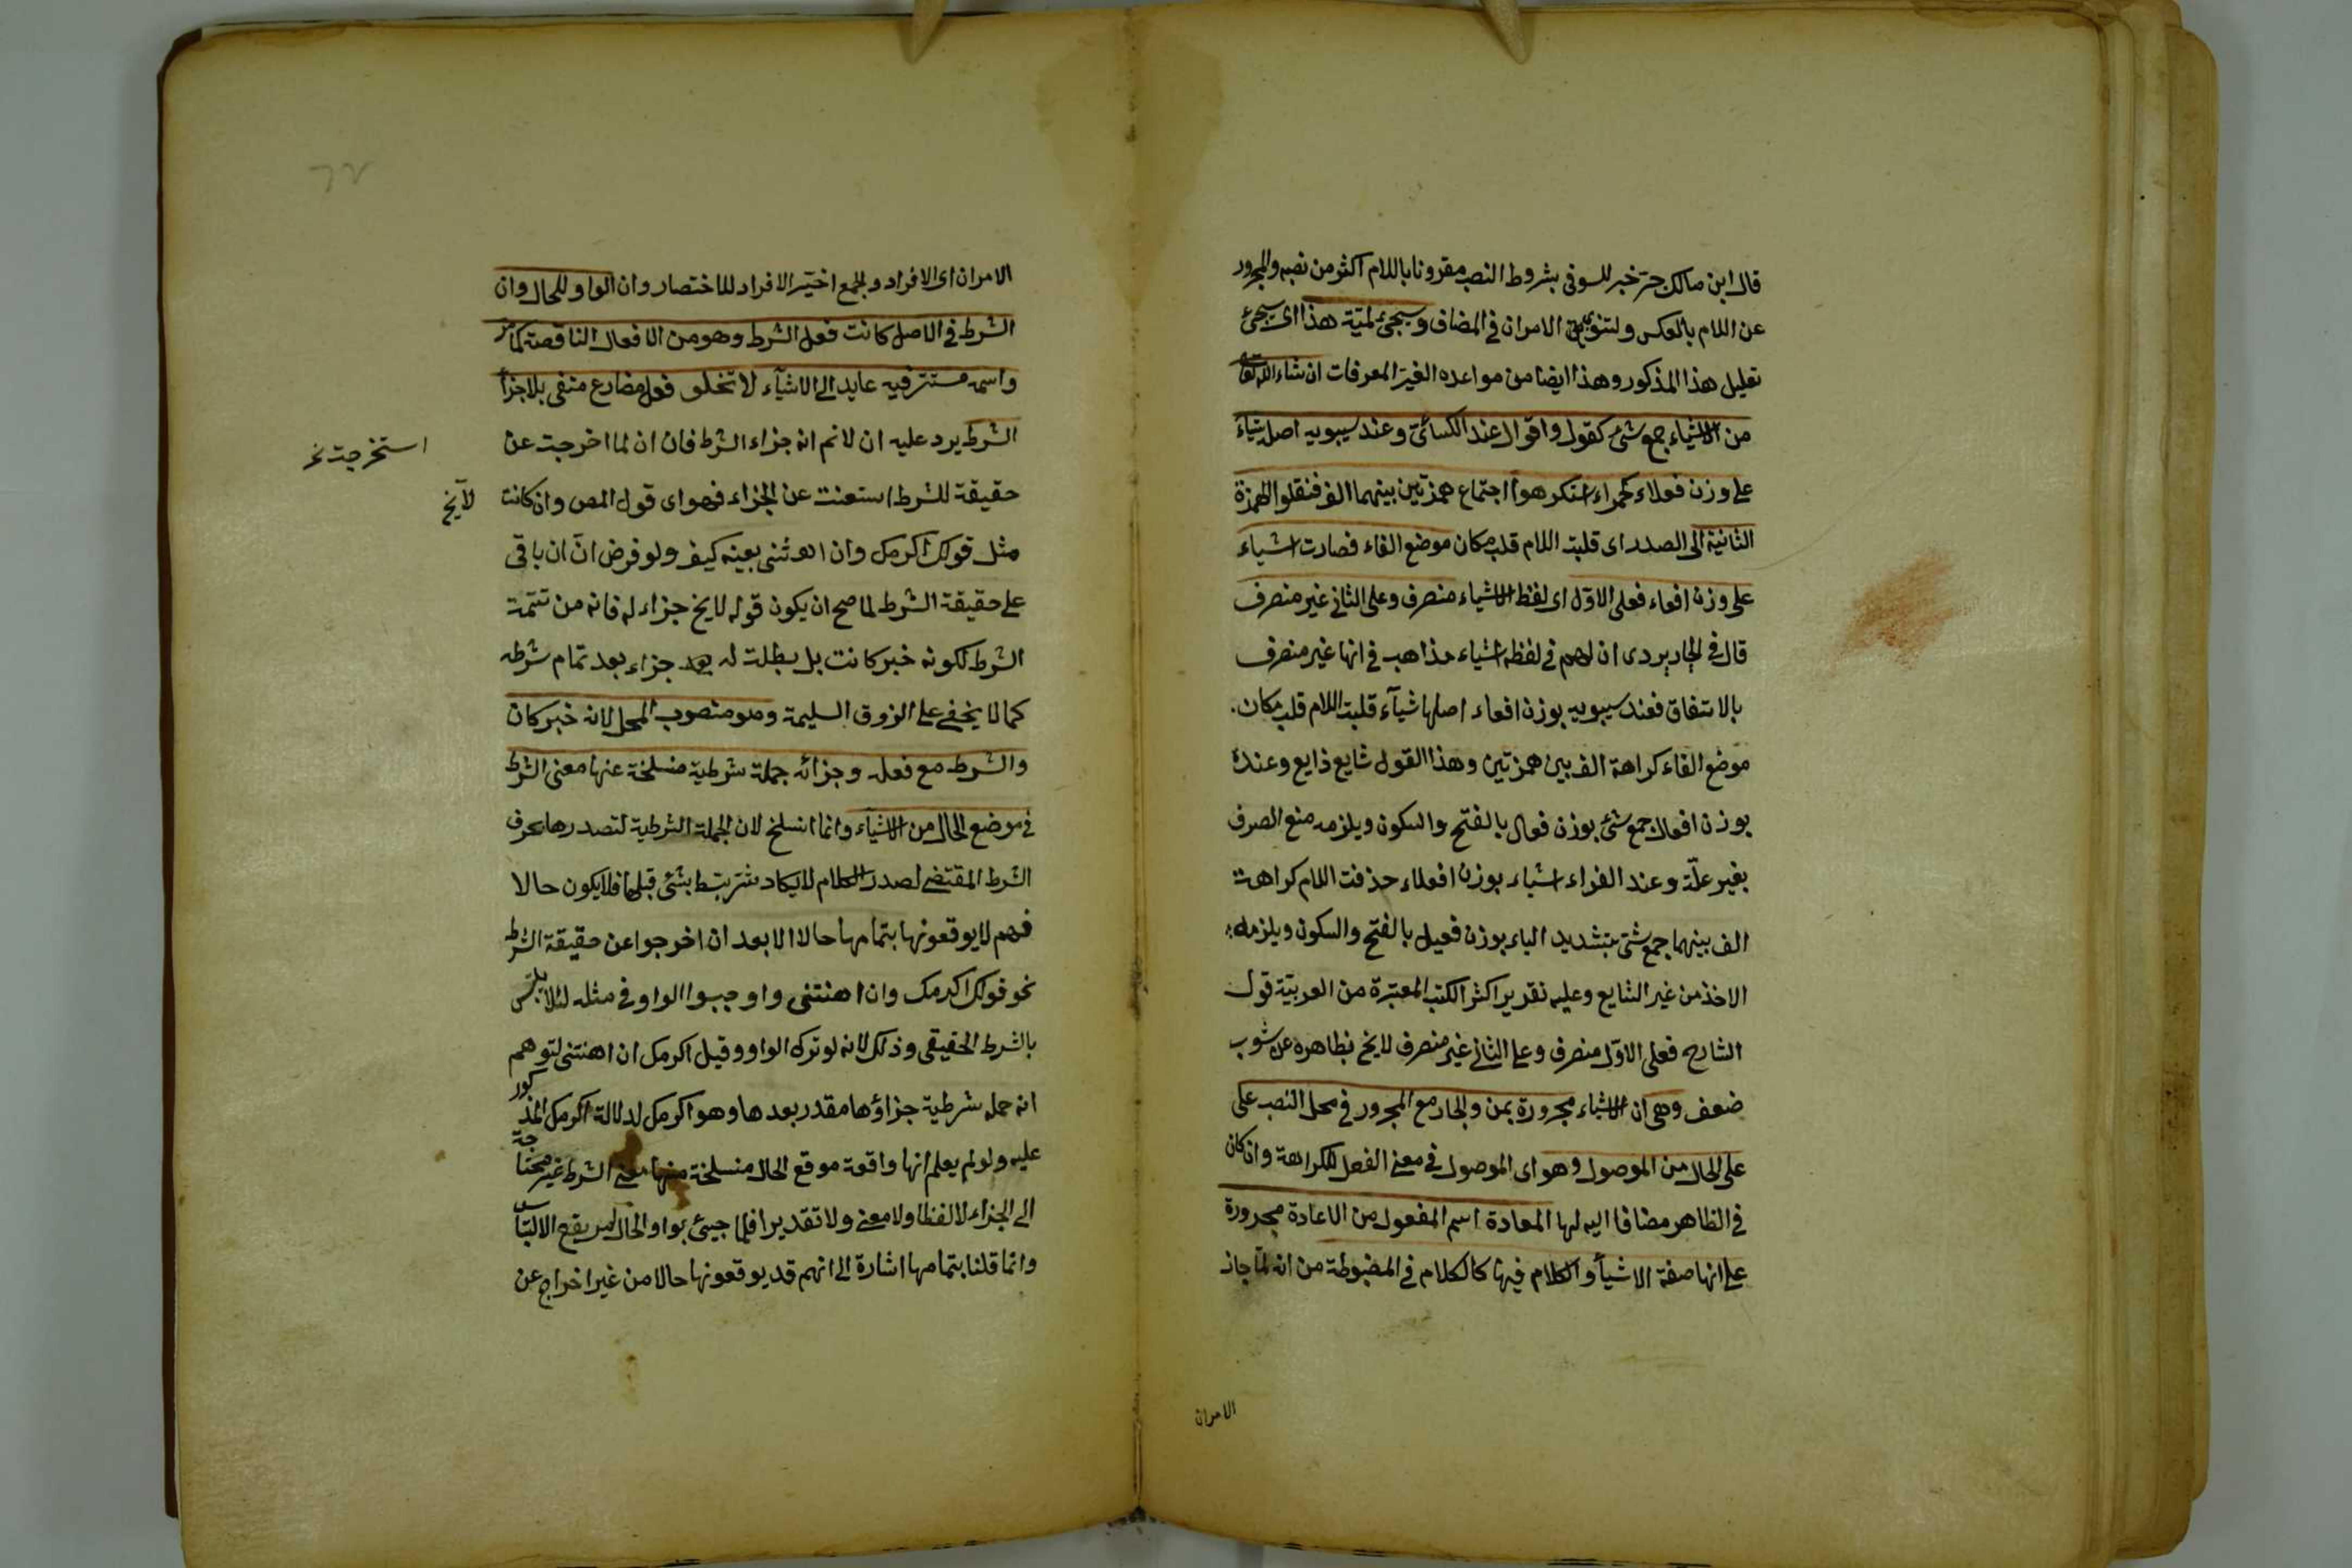 قال ابن مالك جر خبر للسوفى بشروط النصب مقرونا باللام اكثر من نصبه والمجرور
عن اللام بالعكس ولتنوى الامران فى المضاف وسيجئ لمّيّة هذا اى سيجئ
تعليل هذا المذكور وهذا ايضا من مواعده الغير المعرفات ان شاء الله تعا
من الاشياء جمع شئ كقول واقوال عند الكسائى وعند سيبويه اصله شياء
على وزن فعلاء كحمراء استكرهوا اجتماع همزتين بينهما الف فنقلوا الهمزة
الثانية الى الصدر اى قلبت اللام قلب مكان موضع الفاء فصارت اشياء
على وزن افعاء فعلى الاوّل اى لفظ الاشياء منصرف وعلى الثانى غير منصرف
قال فى الجاربردى ان لهم فى لفظه اشياء مذاهب فى انها غير منصرف
بالاتفاق فعند سيبويه بوزن افعاء اصلها شيآء قلبت اللام قلب مكان
موضع الفاء كراهة الف بين همزتين وهذا القول شايع ذايع وعند
بوزن افعال جمع شئ بوزن فعال بالفتح والسكون ويلزمه منع الصرف
بغير علّة وعند الفراء اشياء بوزن افعلاء حذفت اللام كراهت
الف بينهما جمع شئ بتشديد الياء بوزن فعيل بالفتح والسكون ويلزمه
الاخذ من غير الشايع وعليه تقرير اكثر الكتب المعتبرة من العربيّة قول
الشارح فعلى الاوّل منصرف وعلى الثانى غير منصرف لايخ بظاهره عن شوب
ضعف وهى ان الاشياء مجرورة بمن والجار مع المجرور فى محل النصب على
على الحال من الموصول وهو اى الموصول فى معنى الفعل للكراهة وان كان
فى الظاهر مضافا اليه لها المعادة اسم المفعول من الاعادة مجرورة
على انها صفة الاشيأ والكلام فيها كالكلام فى المضبوطة من انه لمّا جاز
الامران
الامران اى الافراد والجمع اختير الافراد للاختصار وان الواو للحال وان
الشرط فى الاصل كانت فعل الشرط وهو من الافعال الناقصة كما مر
واسمه مستتر فيه عايد الى الاشيآء لا تخلو فعل مضارع منفى بلا جزأ
الشرط يرد عليه ان لانم انه جزاء الشرط فان ان لما اخرجت عن
استخرجت نخ
حقيقة للشرط استعنت عن الجزاء فهو اى قول المص وان كانت
لايخ
مثل قولك اكرمك وان اهنتنى بعينه كيف ولو فرض انّ ان باقى
على حقيقة الشرط لما صح ان يكون قوله لايخ جزاء له فانه من تتمة
الشرط لكونه خبر كانت بل بطلت له بعد جزاء بعد تمام شرطه
كما لا يخفى على الزوق السليمة وهو منصوب المحل لانه خبر كان
والشرط مع فعله وجزائه جملة شرطية منسلخة عنها معنى الشرط
فى موضع الحال من الاشياء وانما انسلخ لان الجملة الشرطية لتصدرها بحرف
الشرط المقتضى لصدر الكلام لايكاد شرتبط بشئ قبلها فلا يكون حالا
فهم لا يوقعونها بتمامها حالا الا بعد ان اخرجوا عن حقيقة الشرط
نحو قولك اكرمك وان اهنتنى واوجبوا الواو فى مثله لئلا يلتبس
بالشرط الحقيقى وذلك لانه لو ترك الواو وقيل اكرمك ان اهنتنى لتوهم
انه جمله شرطية جزاؤها مقدر بعدها وهو اكرمك لدلالة اكرمك المذكور
عليه ولو لم يعلم انها واقعة موقع الحال منسلخة منها معنى الشرط غير محتاجة
الى الجزاء لا لفظا ولا معنى ولا تقديرا فلما جيئ بواو الحال لم يقع الالتباس
وانما قلنا بتمامها اشارة الى انهم قد يوقعونها حالا من غير اخراج عن